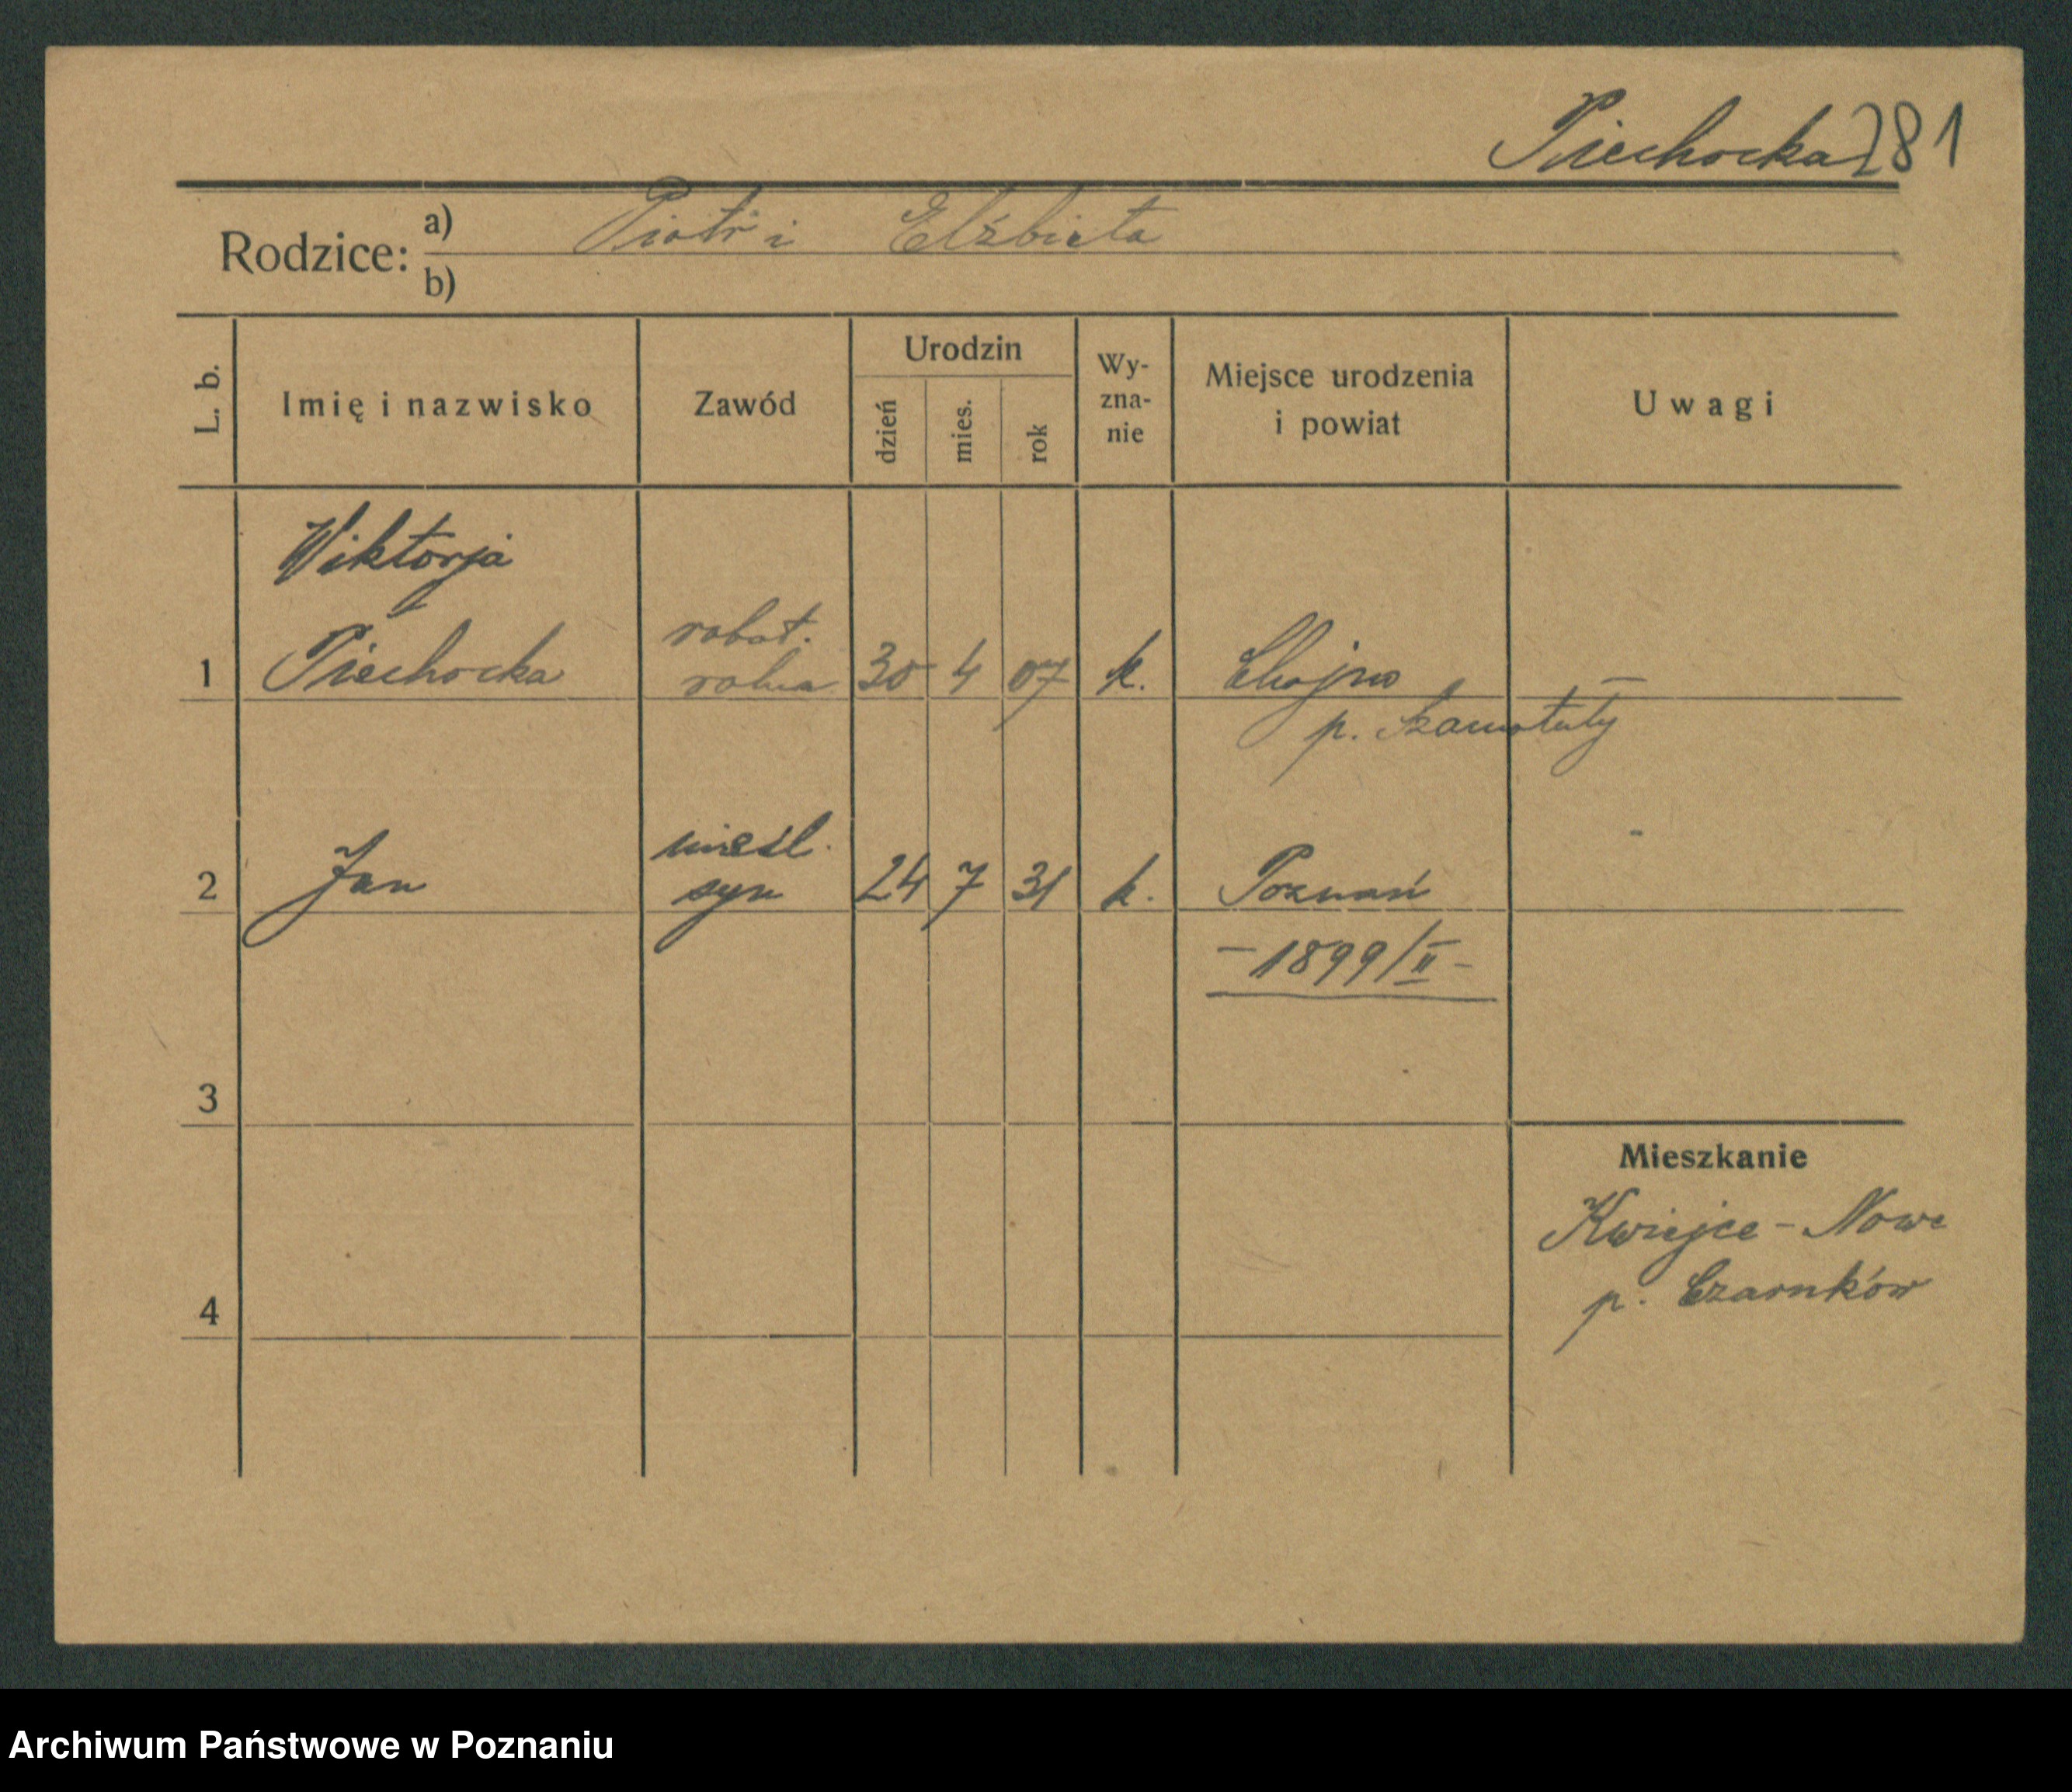 Piechocka 281
Rodzice: a) Piotr i Elżbieta
b)
L. b. Imię i nazwisko Zawód Urodzin dzień mies. rok Wy-zna-nie Miejsce urodzenia i powiat Uwagi
Wiktorja
1 Piechocka robot. rolna 30 4 07 k. Chojno
p. Szamotuły
2 Jan nieśl. syn 24 7 31 k. Poznań
- 1899/II -
3
Mieszkanie
Kwiejce - Nowe
p. Czarnków
4
Archiwum Państwowe w Poznaniu